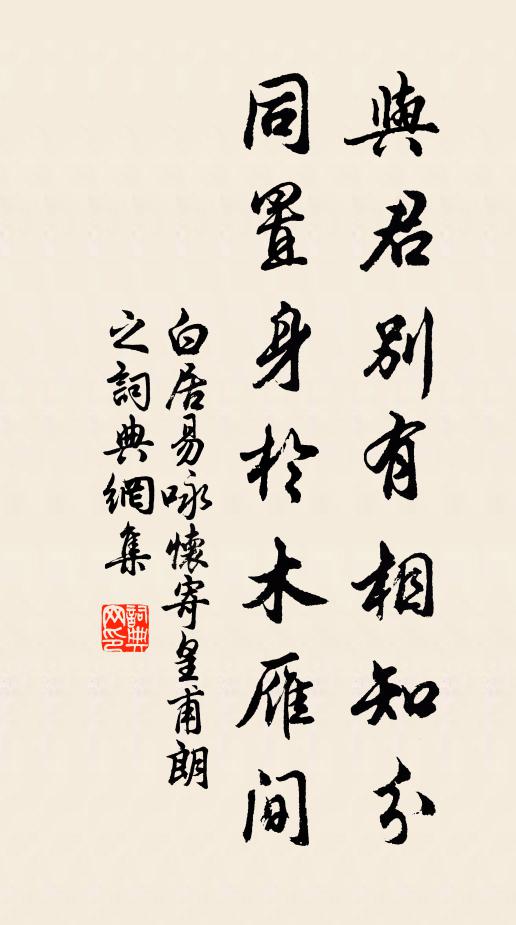 與君別有相知分
同置身於木雁间
白居易咏懷寄皇甫朗
之詞典網集
詞典网印